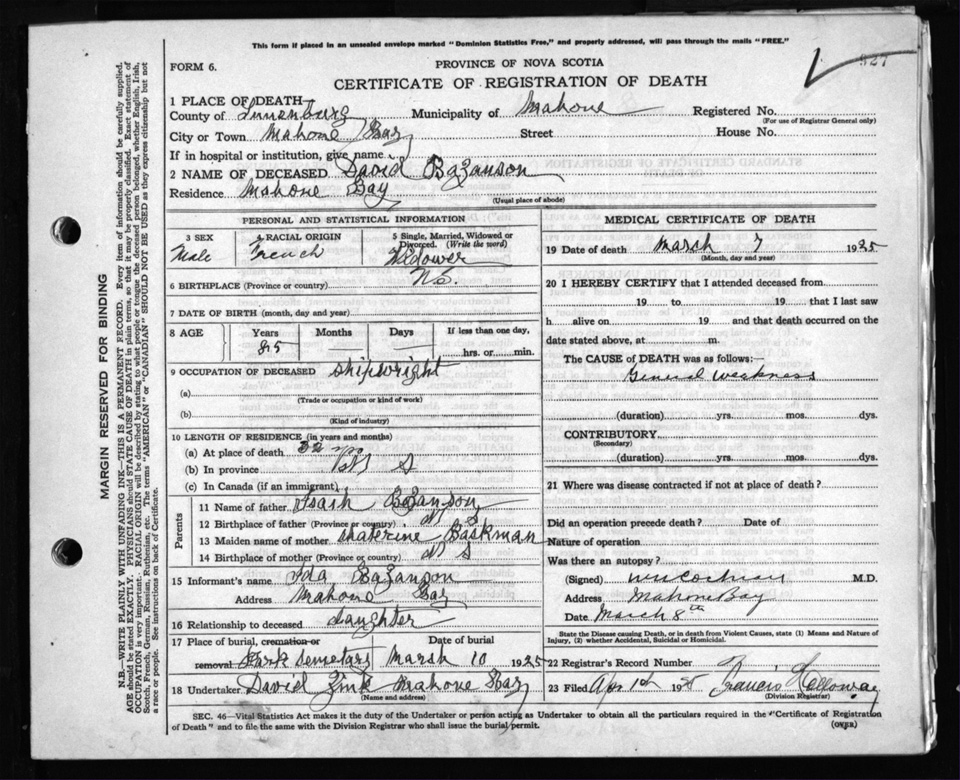 This form if placed in an unsealed envelope marked "Dominion Statistics Free," and properly addressed, will pass through the mails "FREE."
FORM 6.
PROVINCE OF NOVA SCOTIA
527
CERTIFICATE OF REGISTRATION OF DEATH
1 PLACE OF DEATH—
County of Lunenburg Municipality of Mahone Registered No.
(For use of Registrar General only)
City or Town Mahone Bay Street House No.
If in hospital or institution, give name
2 NAME OF DECEASED David Bazanson
Residence Mahone Bay
(Usual place of abode)
PERSONAL AND STATISTICAL INFORMATION
3 SEX
Male
4 RACIAL ORIGIN
French
5 Single, Married, Widowed or Divorced. (Write the word)
Widower
6 BIRTHPLACE (Province or country) N.S.
7 DATE OF BIRTH (month, day and year)
8 AGE Years Months Days If less than one day,
85 hrs. or min.
9 OCCUPATION OF DECEASED Shipwright
(a)
(Trade or occupation or kind of work)
(b)
(Kind of industry)
10 LENGTH OF RESIDENCE (in years and months)
(a) At place of death
(b) In province N S
(c) In Canada (if an immigrant)
Parents
11 Name of father Bazanson
12 Birthplace of father (Province or country) N S
13 Maiden name of mother Baskman
14 Birthplace of mother (Province or country) N S
15 Informant's name Ida Bazanson
Address Mahone Bay
16 Relationship to deceased Daughter
17 Place of burial, cremation or removal Park Semetary
Date of burial March 10 1925
18 Undertaker David Zink Mahone Bay
(Name and address)
MEDICAL CERTIFICATE OF DEATH
19 Date of death March 7 1925
(Month, day and year)
20 I HEREBY CERTIFY that I attended deceased from
19 to 19 that I last saw
h alive on 19 and that death occurred on
date stated above, at m.
The CAUSE of DEATH was as follows:—
General weakness
(duration) yrs. mos. dys.
CONTRIBUTORY
(Secondary)
(duration) yrs. mos. dys.
21 Where was disease contracted if not at place of death?
Did an operation precede death? Date of
Nature of operation
Was there an autopsy?
(Signed) Cochran M.D.
Address Mahone Bay
Date March 8th
State the Disease causing Death, or in death from Violent Causes, state (1) Means and Nature of Injury, (2) whether Accidental, Suicidal or Homicidal.
22 Registrar's Record Number
23 Filed Apr 1st 1925 Francis Holloway
(Division Registrar)
SEC. 46—Vital Statistics Act makes it the duty of the Undertaker or person acting as Undertaker to obtain all the particulars required in the "Certificate of Registration
of Death" and to file the same with the Division Registrar who shall issue the burial permit.
(OVER)
MARGIN RESERVED FOR BINDING
N.B.—WRITE PLAINLY WITH UNFADING INK—THIS IS A PERMANENT RECORD. Every item of information should be carefully supplied.
AGE should be stated EXACTLY. PHYSICIANS should STATE CAUSE OF DEATH in plain terms, so that it may be properly classified. Exact statement of
OCCUPATION is very important. RACIAL ORIGIN will be described by stating to what people or tongue the deceased person belonged, whether English, Irish,
Scotch, French, German, Russian, Ruthenian, etc. The terms "AMERICAN" or "CANADIAN" SHOULD NOT BE USED as they express citizenship but not
a race or people. See instructions on back of Certificate.